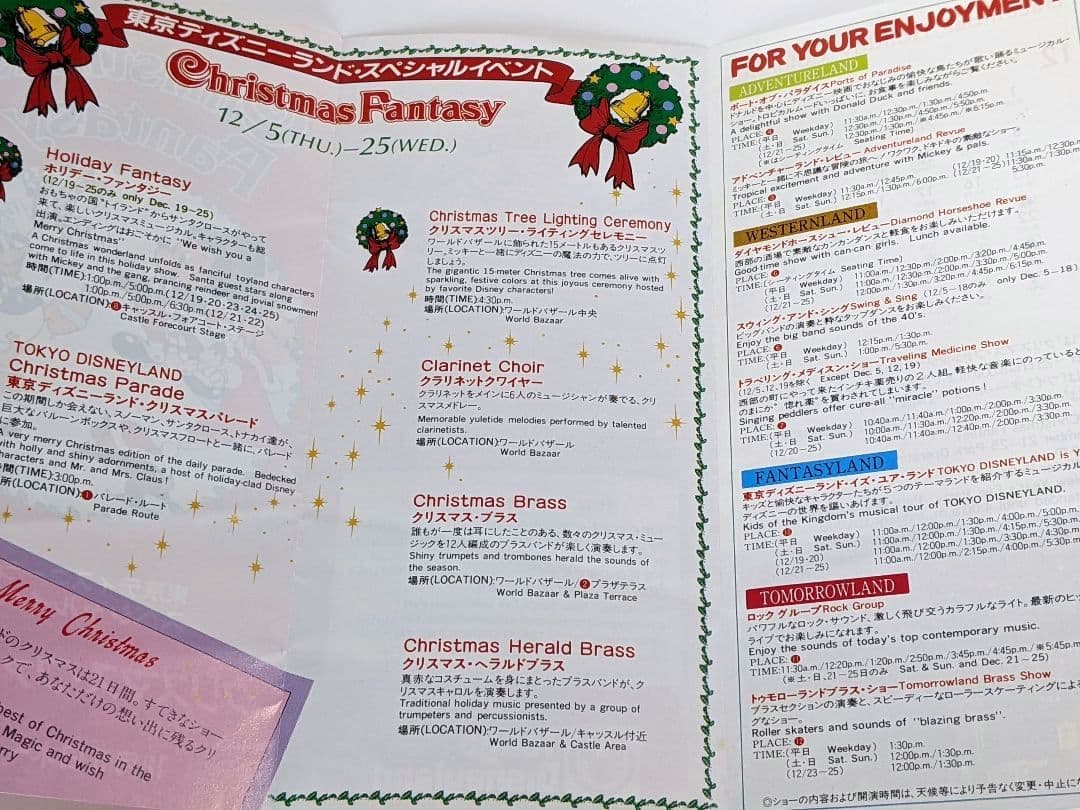 東京ディズニーランド・スペシャルイベント
Christmas Fantasy
12/5(THU.)—25(WED.)
Holiday Fantasy
ホリデー・ファンタジー
(12/19〜25のみ only Dec. 19~25)
おもちゃの国"トイランド"からサンタクロースがやって
来て、楽しいクリスマスミュージカル。キャラクターも総
出演。エンディングはおごそかに "We wish you a
Merry Christmas"
A Christmas wonderland unfolds as fanciful toyland characters
come to life in this holiday show. Santa guest stars along
with Mickey and the gang, prancing reindeer and jovial snowmen!
時間(TIME):1:00p.m./5:00p.m.(12/19・20・23・24・25)
1:00p.m./5:00p.m./6:30p.m.(12/21・22)
場所(LOCATION):❽キャッスル・フォアコート・ステージ
Castle Forecourt Stage
TOKYO DISNEYLAND
Christmas Parade
東京ディズニーランド・クリスマスパレード
この期間しか会えない、スノーマン、サンタクロース、トナカイ達が、
巨大なバルーンボックスや、クリスマスフロートと一緒に、パレード
に参加。
A very merry Christmas edition of the daily parade. Bedecked
with holly and shiny adornments, a host of holiday-clad Disney
characters and Mr. and Mrs. Claus!
時間(TIME):3:00p.m.
場所(LOCATION):❶パレード・ルート
Parade Route
Merry Christmas
ドのクリスマスは21日間。すてきなショー
クで、あなただけの想い出に残るクリ
best of Christmas in the
Magic and wish
rry
Christmas Tree Lighting Ceremony
クリスマスツリー・ライティングセレモニー
ワールドバザールに飾られた15メートルもあるクリスマスツ
リー。ミッキーと一緒にディズニーの魔法の力で、ツリーに点灯
しましょう。
The gigantic 15-meter Christmas tree comes alive with
sparkling, festive colors at this joyous ceremony hosted
by favorite Disney characters!
時間(TIME)4:30p.m.
場所(LOCATION):ワールドバザール中央
World Bazaar
Clarinet Choir
クラリネットクワイヤー
クラリネットをメインに6人のミュージシャンが奏でる、クリ
スマスメドレー。
Memorable yuletide melodies performed by talented
clarinetists.
場所(LOCATION):ワールドバザール
World Bazaar
Christmas Brass
クリスマス・ブラス
誰もが一度は耳にしたことのある、数々のクリスマス・ミュー
ジックを12人編成のブラスバンドが楽しく演奏します。
Shiny trumpets and trombones herald the sounds of
the season.
場所(LOCATION):ワールドバザール/❷プラザテラス
World Bazaar & Plaza Terrace
Christmas Herald Brass
クリスマス・ヘラルドブラス
真赤なコスチュームを身にまとったブラスバンドが、ク
リスマスキャロルを演奏します。
Traditional holiday music presented by a group of
trumpeters and percussionists.
場所(LOCATION):ワールドバザール/キャッスル付近
World Bazaar & Castle Area
FOR YOUR ENJOYMENT
ADVENTURELAND
ポート・オブ・パラダイスPorts of Paradise
ドナルドを中心にディズニー映画でおなじみの愉快な鳥たちが歌い踊るミュージカル・
ショー。トロピカルムードいっぱいに、お食事を楽しみながらご覧ください。
A delightful show with Donald Duck and friends.
PLACE:❹
TIME:(平日 Weekday) 11:30a.m./12:30p.m./1:30p.m./4:50p.m.
(土・日 Sat. Sun.) 12:30p.m./1:30p.m./4:50p.m./5:50p.m.
(12/21〜25)
(※はシーティングタイム Seating Time)
アドベンチャーランド・レビュー Adventureland Revue
ミッキーと一緒に不思議な冒険の旅へ!ワクワク、ドキドキの素敵なショー。
Tropical excitement and adventure with Mickey & pals.
PLACE:❸
TIME:(平日 Weekday) 11:30a.m./12:45p.m.
(土・日 Sat. Sun.) 12:15p.m./1:30p.m./6:00p.m.
WESTERNLAND
ダイヤモンドホースシュー・レビューDiamond Horseshoe Revue
西部の酒場で素敵なカンカンダンスと軽食をお楽しみいただけます。
Good time show with can-can girls. Lunch available.
PLACE:❺
TIME:(シーティングタイム Seating Time)
(平日 Weekday) 11:00a.m./12:30p.m./2:00p.m./3:20p.m./4:45p.m.
(土・日 Sat. Sun.)
(12/21〜25)
スウィング・アンド・シングSwing & Sing (12/5〜18のみ only Dec. 5~18)
ビッグバンドの演奏と粋なタップダンスをお楽しみください。
Enjoy the big band sounds of the 40's.
PLACE:❻
TIME:(平日 Weekday) 12:15p.m./1:30p.m.
(土・日 Sat. Sun.) 1:00p.m./5:30p.m.
トラベリング・メディスン・ショーTraveling Medicine Show
(12/5、12、19を除く Except Dec. 5, 12, 19)
西部の町にやって来たインチキ薬売りの2人組。軽快な音楽にのっていると
のまにか"惚れ薬"を買わされてしまいます。
Singing peddlers offer cure-all "miracle" potions!
PLACE:❼
TIME:(平日 Weekday) 10:40a.m./11:40a.m./1:00p.m./2:00p.m./3:30p.m.
(土・日 Sat. Sun.) 10:00a.m./11:00a.m./12:00p.m./2:00p.m./3:30p.m.
(12/20〜25) 10:40a.m./11:40a.m./12:40p.m./2:00p.m./3:30p.m.
FANTASYLAND
東京ディズニーランド・イズ・ユア・ランドTOKYO DISNEYLAND is Y
キッズと愉快なキャラクターたちが5つのテーマランドを紹介するミュージカル
ディズニーの世界を謳いあげます。
Kids of the Kingdom's musical tour of TOKYO DISNEYLAND.
PLACE:❿
TIME:(平日 Weekday) 11:00a.m./12:00p.m./1:30p.m./4:00p.m./5:00p.m.
(土・日 Sat. Sun.) 11:00a.m./12:00p.m./1:30p.m./4:15p.m./5:30p.m.
(12/19・20) 11:00a.m./12:00p.m./1:30p.m./3:30p.m./4:30p.m.
(12/21〜25) 11:00a.m./12:00p.m./2:15p.m./4:00p.m./5:30p.m.
TOMORROWLAND
ロック グループRock Group
パワフルなロック・サウンド、激しく飛び交うカラフルなライト。最新のヒッ
ライブでお楽しみになれます。
Enjoy the sounds of today's top contemporary music.
PLACE:⓫
TIME:11:30a.m./12:20p.m./1:20p.m./2:50p.m./3:45p.m./4:45p.m./※5:45p.m.
(※土・日、21〜25日のみ Sat. & Sun. and Dec. 21~25)
トゥモローランドブラス・ショーTomorrowland Brass Show
ブラスセクションの演奏と、スピーディーなローラースケーティングによる
グなショー。
Roller skaters and sounds of "blazing brass".
PLACE:⓬
TIME:(平日 Weekday) 1:30p.m.
(土・日 Sat. Sun.) 12:00p.m./1:30p.m.
(12/23〜25) 12:00p.m./1:30p.m.
◎ショーの内容および開演時間は、天候等により予告なく変更・中止に